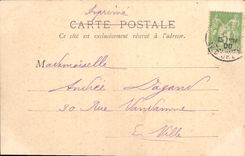 Imprimé
CARTE POSTALE
Ce côté est exclusivement réservé à l'adresse.
Mademoiselle
Andrée
30 Rue Vandamme
En Ville